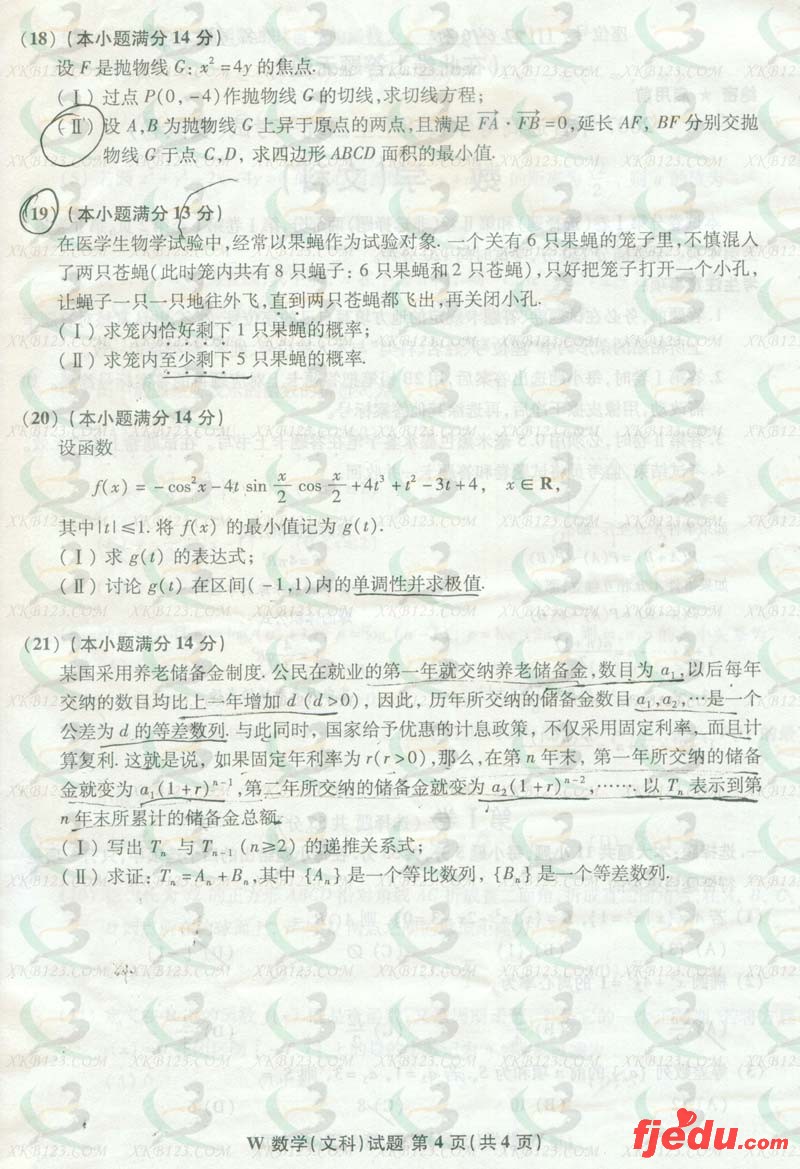 (18) (本小题满分 14 分)
设 F 是抛物线 G: x²=4y 的焦点.
(Ⅰ) 过点 P(0, -4)作抛物线 G 的切线,求切线方程;
(Ⅱ) 设 A,B 为抛物线 G 上异于原点的两点,且满足 $\overrightarrow{FA}$ · $\overrightarrow{FB}$ =0,延长 AF, BF 分别交抛
物线 G 于点 C,D, 求四边形 ABCD 面积的最小值.
(19) (本小题满分 13 分)
在医学生物学试验中,经常以果蝇作为试验对象. 一个关有 6 只果蝇的笼子里,不慎混入
了两只苍蝇(此时笼内共有 8 只蝇子: 6 只果蝇和 2 只苍蝇),只好把笼子打开一个小孔,
让蝇子一只一只地往外飞,直到两只苍蝇都飞出,再关闭小孔.
(Ⅰ) 求笼内恰好剩下 1 只果蝇的概率;
(Ⅱ) 求笼内至少剩下 5 只果蝇的概率.
(20) (本小题满分 14 分)
设函数
f(x) = -cos²x-4t sin x/2 cos x/2 +4t³+t²-3t+4, x∈R,
其中|t|≤1. 将 f(x) 的最小值记为 g(t).
(Ⅰ) 求 g(t) 的表达式;
(Ⅱ) 讨论 g(t) 在区间( -1,1)内的单调性并求极值.
(21) (本小题满分 14 分)
某国采用养老储备金制度. 公民在就业的第一年就交纳养老储备金,数目为 a₁,以后每年
交纳的数目均比上一年增加 d (d>0), 因此, 历年所交纳的储备金数目 a₁,a₂,…是一个
公差为 d 的等差数列. 与此同时, 国家给予优惠的计息政策, 不仅采用固定利率, 而且计
算复利. 这就是说, 如果固定年利率为 r(r>0),那么,在第 n 年末, 第一年所交纳的储备
金就变为 a₁(1+r)ⁿ⁻¹,第二年所交纳的储备金就变为 a₂(1+r)ⁿ⁻²,……. 以 Tₙ 表示到第
n 年末所累计的储备金总额.
(Ⅰ) 写出 Tₙ 与 Tₙ₋₁ (n≥2) 的递推关系式;
(Ⅱ) 求证: Tₙ=Aₙ+Bₙ,其中 {Aₙ} 是一个等比数列, {Bₙ} 是一个等差数列.
W 数学(文科)试题 第 4 页(共 4 页)
fjedu.com